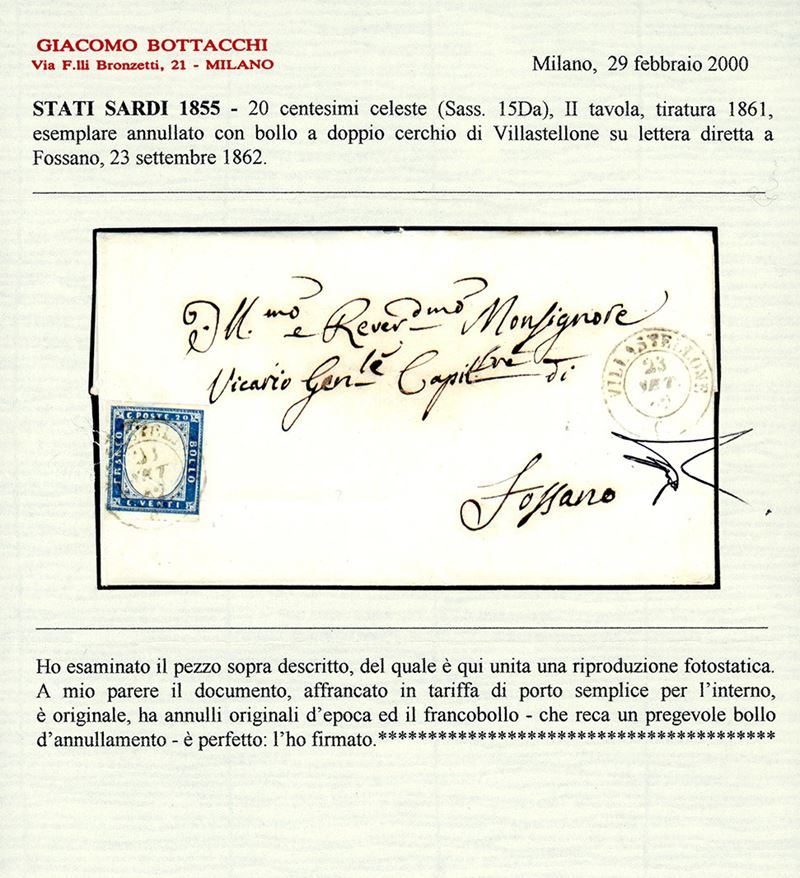 GIACOMO BOTTACCHI
Via F.lli Bronzetti, 21 - MILANO
Milano, 29 febbraio 2000
STATI SARDI 1855 - 20 centesimi celeste (Sass. 15Da), II tavola, tiratura 1861,
esemplare annullato con bollo a doppio cerchio di Villastellone su lettera diretta a
Fossano, 23 settembre 1862.
Ill.mo e Reverdmo Monsignore
Vicario Genle Capitlre di
VILLASTELLONE
23
SET.
C. POSTE. 20
FRANCO
BOLLO
C. VENTI
Fossano
Ho esaminato il pezzo sopra descritto, del quale è qui unita una riproduzione fotostatica.
A mio parere il documento, affrancato in tariffa di porto semplice per l'interno,
è originale, ha annulli originali d'epoca ed il francobollo - che reca un pregevole bollo
d'annullamento - è perfetto: l'ho firmato.****************************************